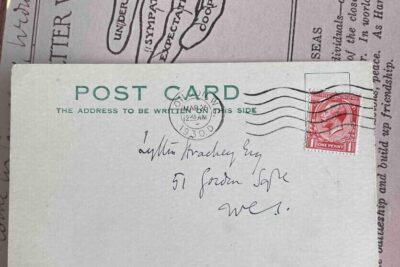 UNDER
"SYMPATH
EXPECTATIO
COOP
TTER W
SEAS
of the close
In world
peace. As Har
battleship and build up friendship.
POST CARD
THE ADDRESS TO BE WRITTEN ON THIS SIDE
MAR
1930
1 ONE PENNY 1
Lytton Strachey Esq
51 Gordon Sqre
WC1.